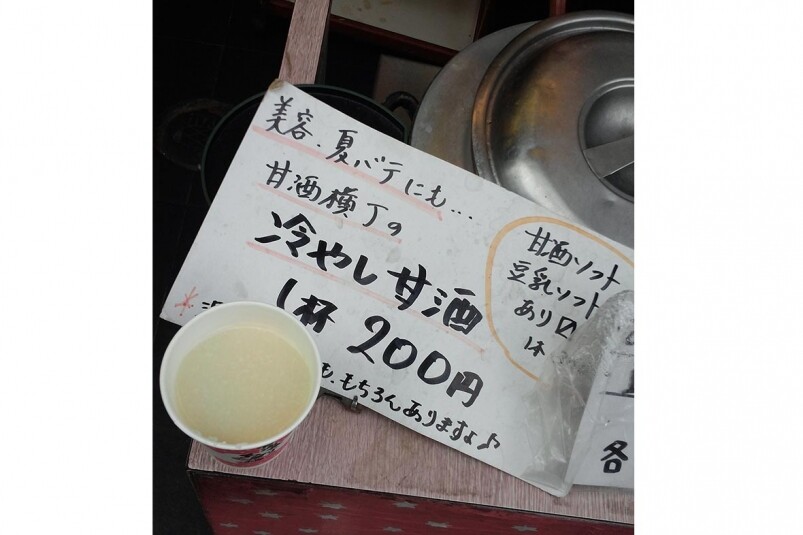 美容、夏バテにも...
甘酒横丁の
冷やし甘酒
1杯 200円
も、もちろんありますよ♪
甘酒ソフト
豆乳ソフト
あり〼
各